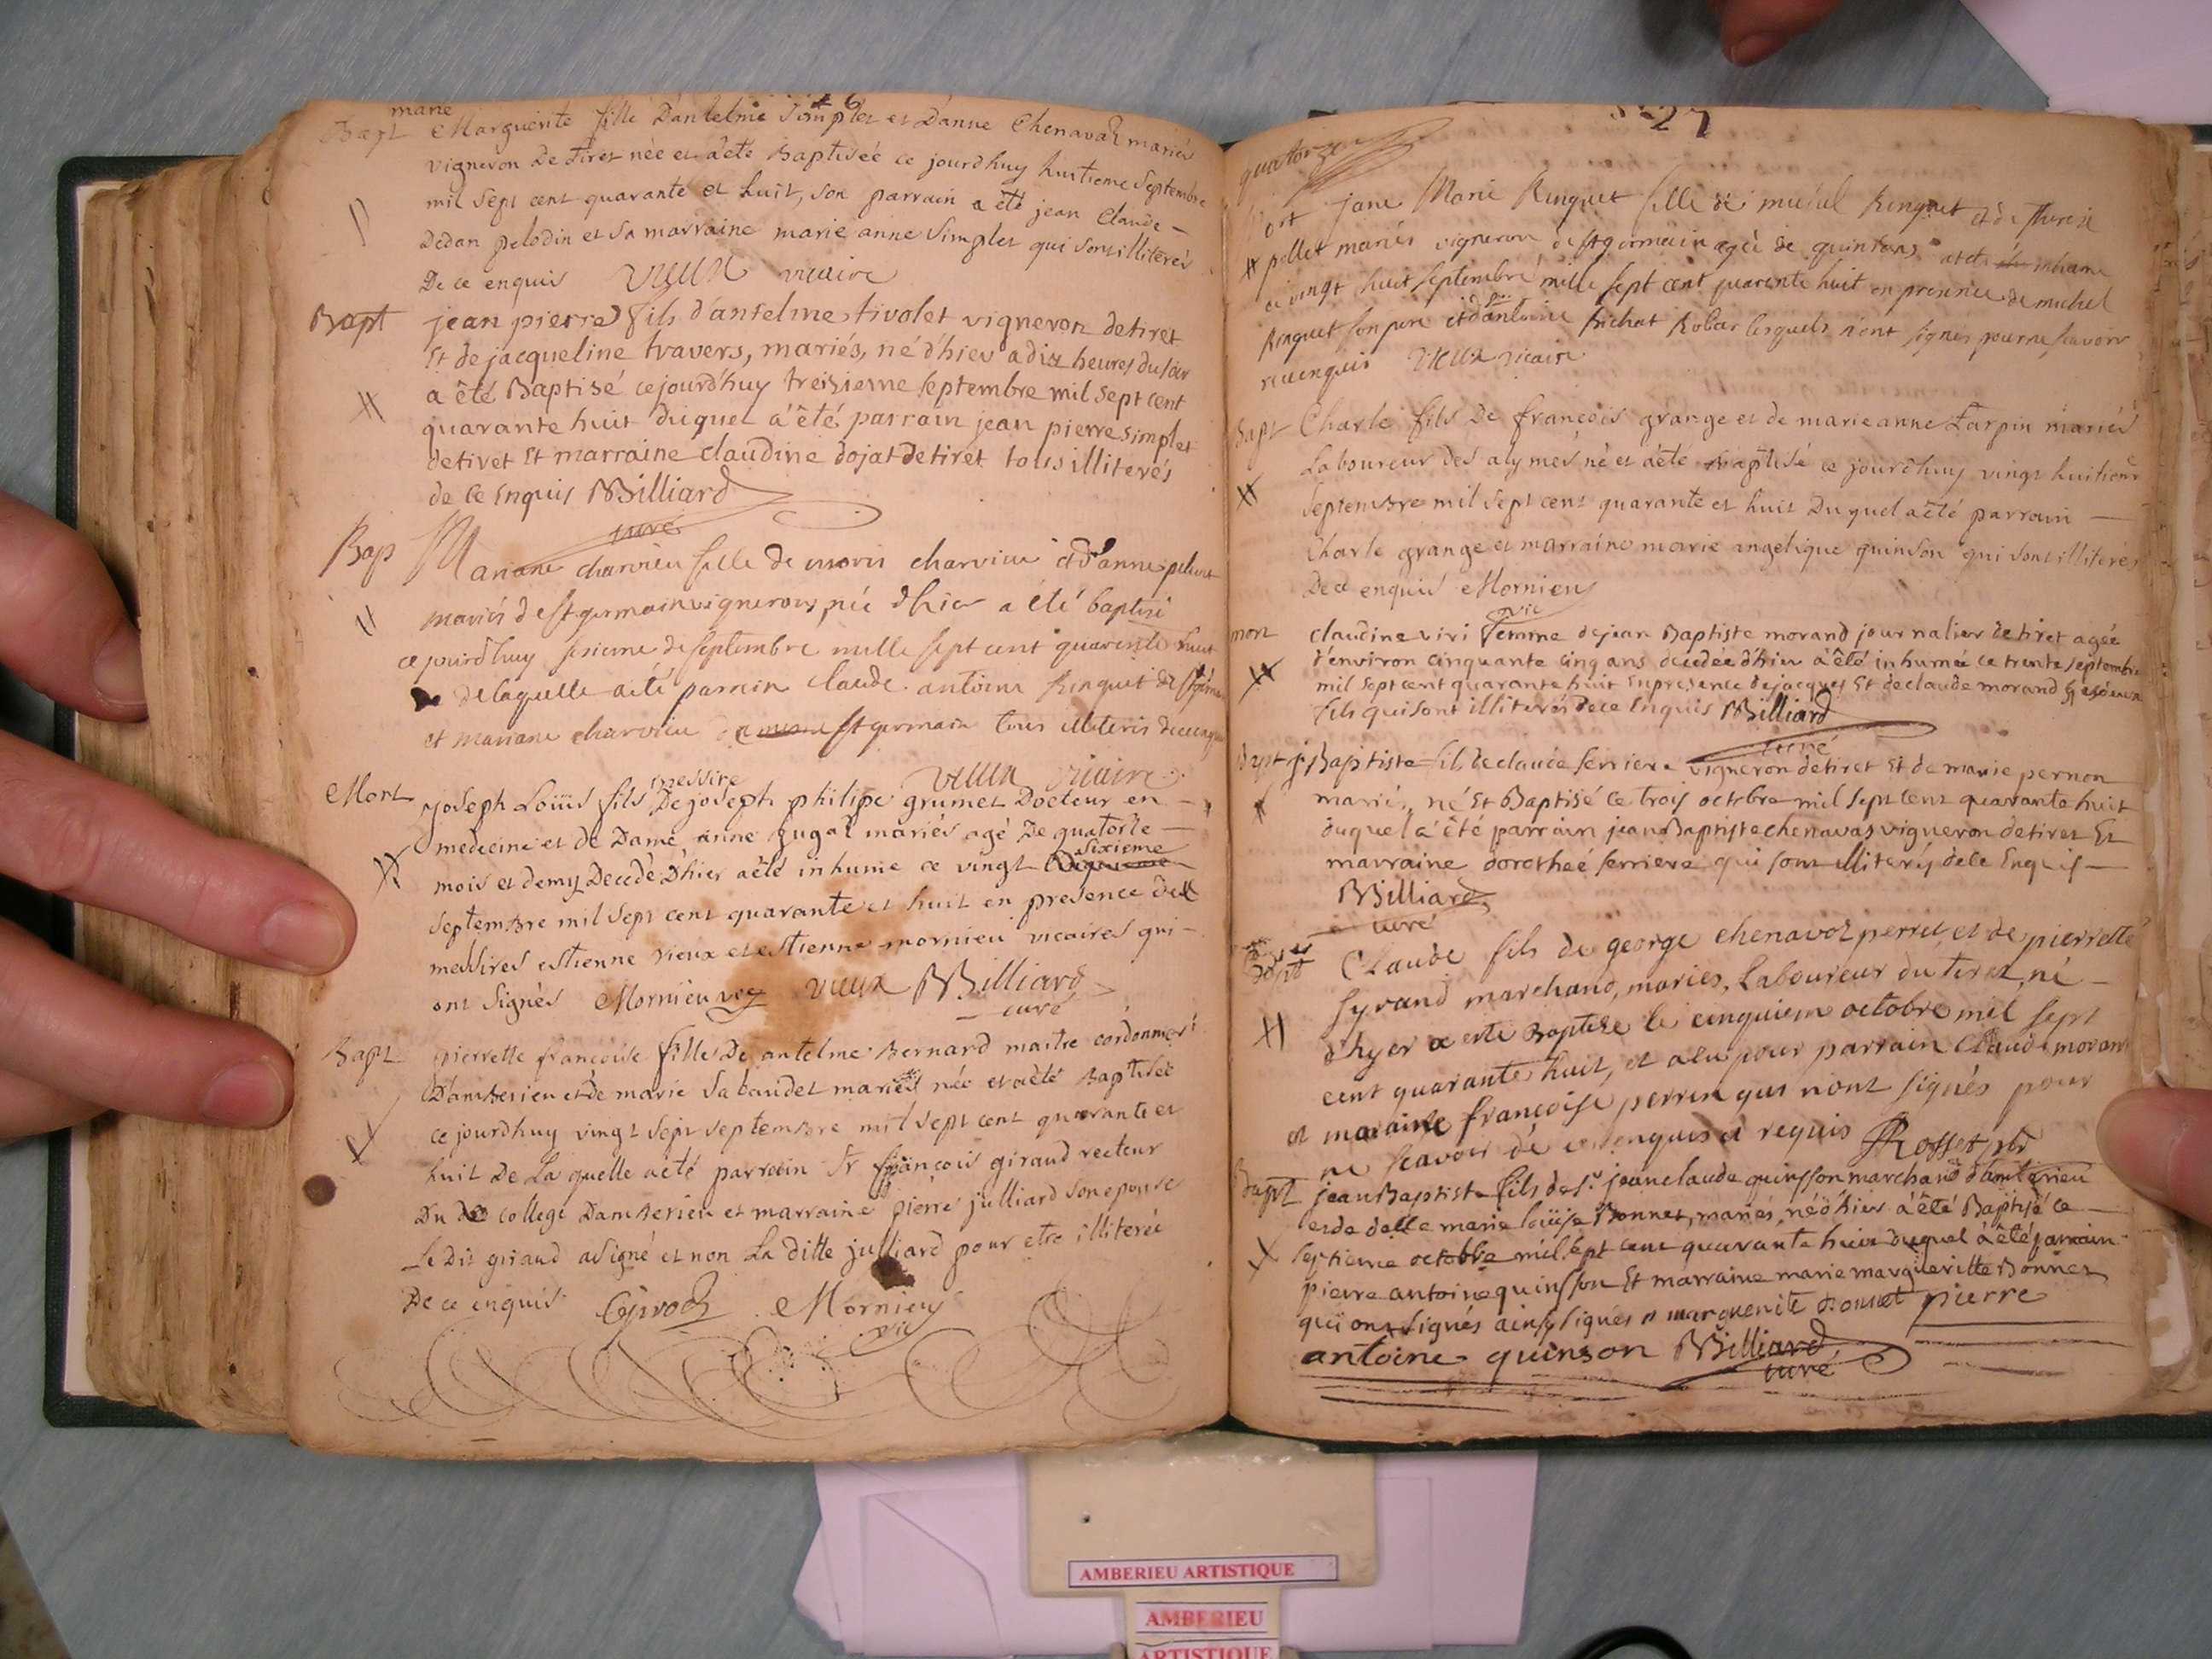 26
marie
Bapt Marguerite fille D'antelme Simplet et D'anne Chenavaz mariés
vigneron De Tiret née et a été Baptisée ce jourdhuy huitieme Septembre
mil sept cent quarante et huit, son parrain a été jean Claude -
Dedan pelodin et sa marraine marie anne Simplet qui sont illiterés
De ce enquis vieux vicaire
Bapt jean pierre fils d'antelme tivolet vigneron de tiret
Et de jacqueline travers, mariés, né d'hier a dix heures du soir
a été Baptisé cejourd'huy treisieme septembre mil sept cent
quarante huit duquel a été parrain jean pierre simplet
de tiret Et marraine claudine dojat de tiret tous illiterés
de ce Enquis Billiard
curé
Bap Mariane charvieu fille de charvieu et d'anne
mariés de st germain vignerons, née d'hier a été baptisé
ce jourd'huy sesieme de septembre mille sept cent quarente huit
de laquelle a été parrain Claude antoine Ringuet de
et mariane charvieu st germain tous illiteris
vieux vicaire
Mort joseph Loüis fils messire De joseph philipe grumet Docteur en -
medecine et de Dame anne mariés agé De quatorse -
mois et demy Decedé D'hier a été inhumé ce vingt sixieme
septembre mil sept cent quarante et huit en presence de
messires estienne vieux et estienne mornieu vicaires qui -
ont signés Mornieu vieux Billiard
curé
Bapt pierrette francoise fille De antelme Bernard maitre cordonnier
D'amberieu et de marie Sabaudet mariés née et a été Baptisée
ce jourdhuy vingt sept septembre mil sept cent quarante et
huit De La quelle a été parrain Sr francois giraud recteur
Du college D'amberieu et marraine pierre julliard son epouse
Le Dit giraud a signé et non La ditte julliard pour etre illiterée
De ce enquis Mornieu
vic
27
quatorze
Mort jane Marie Ringuet fille de michel Ringuet et de therese
pellet mariés vigneron de st germain agée de quinze ans et inhumé
ce vingt huit septembre mille sept cent quarente huit en presence de michel
Ringuet son pere et d'antoine lesquels n'ont signés pour ne savoir
enquis vieux vicaire
Bapt Charle fils De françois grange et de marie anne Tarpin mariés
Laboureur des alymes né et a été Baptisé ce jourdhuy vingt huitieme
septembre mil sept cent quarante et huit Du quel a été parrain -
Charle grange et marraine marie angelique quinson qui sont illiterés
De ce enquis Mornieu
vic
mort claudine vivi femme de jean Baptiste morand journalier de tiret agée
d'environ cinquante cinq ans decedée d'hier a été inhumée ce trente septembre
mil sept cent quarante huit En presence de jacques Et de claude morand
fils qui sont illiterés de ce Enquis Billiard
curé
Bapt j. Baptiste fils de claude ferriere vigneron de tiret Et de marie pernon
mariés, né Et Baptisé ce trois octobre mil sept cent quarante huit
duquel a été parrain jean Baptiste chenavas vigneron de tiret Et
marraine dorotheé ferriere qui sont illiterés de ce Enquis -
Billiard
curé
Bapt Claude fils de george chenavoz perret et de pierrette
syrand marchand, maries, Laboureur du tiret, né -
d'hyer a esté Baptise le cinquiem octobre mil sept
cent quarante huit, et a eu pour parrain Claude morand
et maraine françoise perrin qui n'ont signés pour
ne scavoir dé ce enquis et requis Rosset
Bapt jean Baptiste fils de Sr. jean claude quinsson marchand d'amberieu
et de delle marie loüise Bonnet, mariés, né d'hier a été Baptisé ce -
septieme octobre mil sept cent quarante huit duquel a été parrain
pierre antoine quinsson Et marraine marie margueritte Bonnet
qui ont signés ainsy signés marguerite Bonnet pierre
antoine quinson Billiard
curé
AMBERIEU ARTISTIQUE
AMBERIEU
ARTISTIQUE